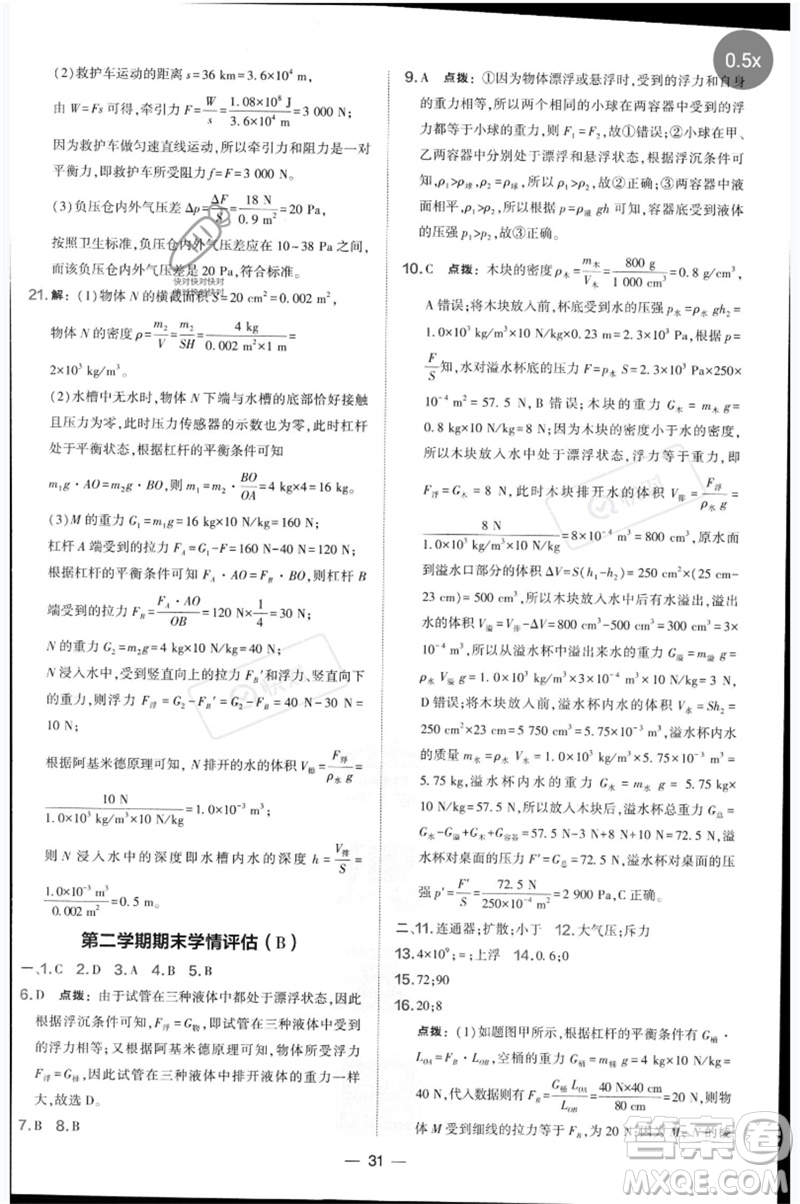 0.5x
(2)救护车运动的距离 s=36 km=3.6×10⁴ m,
由 W=Fs 可得,牵引力 F=W/s=1.08×10⁸ J/3.6×10⁴ m=3 000 N;
因为救护车做匀速直线运动,所以牵引力和阻力是一对
平衡力,即救护车所受阻力 f=F=3 000 N。
(3)负压仓内外气压差 Δp=ΔF/S=18 N/0.9 m²=20 Pa,
按照卫生标准,负压仓内外气压差应在 10~38 Pa 之间,
而该负压仓内外气压差是 20 Pa,符合标准。
快对快对快对
21.解:(1)物体 N 的横截面积 S=20 cm²=0.002 m²,
物体 N 的密度 ρ=m₂/V=m₂/SH=4 kg/
2×10³ kg/m³。
(2)水槽中无水时,物体 N 下端与水槽的底部恰好接触
且压力为零,此时压力传感器的示数也为零,此时杠杆
处于平衡状态,根据杠杆的平衡条件可知
m₁g·AO=m₂g·BO,则 m₁=m₂·BO/OA=4 kg×4=16 kg。
(3)M 的重力 G₁=m₁g=16 kg×10 N/kg=160 N;
杠杆 A 端受到的拉力 F_A=G₁-F=160 N-40 N=120 N;
根据杠杆的平衡条件可知 F_A·AO=F_B·BO,则 B
端受到的拉力 F_B=F_A·AO/OB=120 N×1/4=30 N;
N 的重力 G₂=m₂g=4 kg×10 N/kg=40 N;
N 浸入水中,受到竖直向上的拉力 F_B′和浮力、竖直向下
的重力,则浮力 F浮=G₂-F_B′=G₂-F_B=40 N-30 N=
10 N;
根据阿基米德原理可知,N 排开的水的体积 V排=F浮/ρ水 g=
10 N/1.0×10³ kg/m³×10 N/kg=1.0×10⁻³ m³;
则 N 浸入水中的深度即水槽内水的深度 h=V排/S=
1.0×10⁻³ m³/0.002 m²=0.5 m。
第二学期期末学情评估(B)
一、1.C 2.D 3.A 4.B 5.B
6.D 点拨:由于试管在三种液体中都处于漂浮状态,因此
根据浮沉条件可知,F浮=G物,即试管在三种液体中受到的
浮力相等;又根据阿基米德原理可知,物体所受浮力
F浮=G排,因此试管在三种液体中排开液体的重力一样
大,故选 D。
7.B 8.B
9.A 点拨:①因为物体漂浮或悬浮时,受到的浮力和自身
的重力相等,所以两个相同的小球在两容器中受到的浮
力都等于小球的重力,则 F₁=F₂,故①错误;②小球在甲、
乙两容器中分别处于漂浮和悬浮状态,根据浮沉条件可
知,ρ₁>ρ球,ρ₂=ρ球,所以 ρ₁>ρ₂,故②正确;③两容器中液
面相平,ρ₁>ρ₂,根据 p=ρ液 gh 可知,容器底受到液体的
压强 p₁>p₂,故③正确。
10.C 点拨:木块的密度 ρ木=m木/V木=800 g/1 000 cm³=0.8 g/cm³,
A 错误;木块放入前,杯底受到水的压强 p=ρ水 gh₂=
1.0×10³ kg/m³×10 N/kg×0.23 m=2 300 Pa,根据 p=
F/S知,水对溢水杯底的压力 F=p水 S=2 300 Pa×250×
10⁻⁴ m²=57.5 N,B 错误;木块的重力 G木=m木 g=
0.8 kg×10 N/kg=8 N,因为木块的密度小于水的密度,
所以木块放入水中处于漂浮状态,浮力等于重力,即
F浮=G木=8 N,此时木块排开水的体积 V排=F浮/ρ水 g=
8 N/1.0×10³ kg/m³×10 N/kg=8×10⁻⁴ m³=800 cm³,原水面
到溢水口部分的体积 ΔV=S(h₁-h₂)=250 cm²×(25 cm-
23 cm)=500 cm³,所以木块放入水中后有水溢出,溢出
水的体积 V溢=V排-ΔV=800 cm³-500 cm³=300 cm³=3×
10⁻⁴ m³,从溢水杯中溢出来水的重力 G溢=m溢 g=
ρ水 V溢 g=1.0×10³ kg/m³×3×10⁻⁴ m³×10 N/kg=3 N,
D 错误;放入木块前,溢水杯内水的体积 V水=Sh₂=
250 cm²×23 cm=5 750 cm³=5.75×10⁻³ m³,溢水杯内水
的质量 m水=ρ水 V水=1.0×10³ kg/m³×5.75×10⁻³ m³=
5.75 kg,溢水杯内水的重力 G水=m水 g=5.75 kg×
10 N/kg=57.5 N,所以放入木块后,溢水杯总重力 G总=
G水-G溢+G木+G容器=57.5 N-3 N+8 N+10 N=72.5 N,溢
水杯对桌面的压力 F′=G总=72.5 N,溢水杯对桌面的压
强 p′=F′/S=72.5 N/250×10⁻⁴ m²=2 900 Pa,C 正确。
二、11.连通器;扩散;小于 12.大气压;斥力
13.4×10⁹;=;上浮 14.0.6;0
15.72;90
16.20;8
点拨:(1)如题图甲所示,根据杠杆的平衡条件有 G桶
·L_OA=F_B·L_OB,空桶的重力 G桶=m桶 g=4 kg×10 N/kg=
40 N,代入数据则有 F_B=G桶 L_OA/L_OB=40 N×40 cm/80 cm=20 N,则物
体 M 受到细线的拉力等于 F_B=20 N;因为 M、N 的
31
答案圈
MXQE.COM